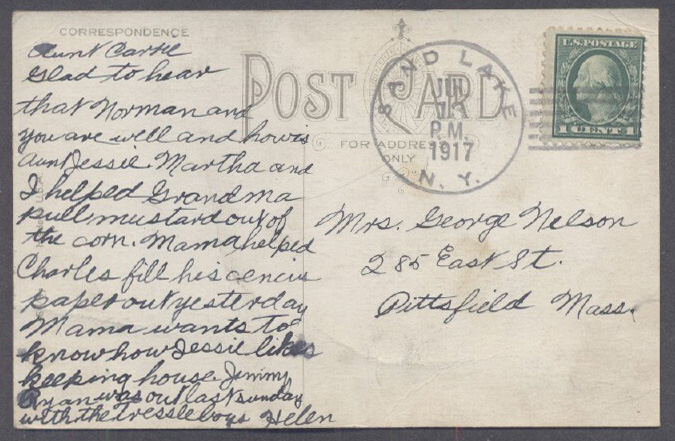 CORRESPONDENCE
Aunt Carrie
Glad to hear
that Norman and
you are well and how is
aunt Jessie. Martha and
I helped Grandma
pull mustard out of
the corn. Mama helped
Charles fill his cencus
paper out yesterday
Mama wants to
know how Jessie likes
keeping house. Jimmy
Ryan was out last sunday
with the Tressleboys Helen
POST CARD
FOR ADDRESS
ONLY
SAND LAKE
JUN
P.M.
1917
N. Y.
U.S. POSTAGE
1 CENT 1
Mrs. George Nelson
285 East St.
Pittsfield Mass.